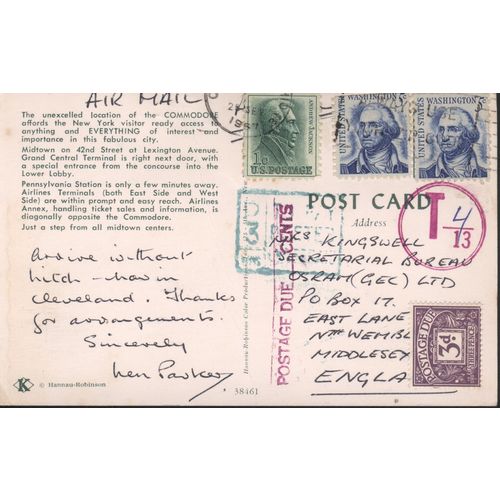 AIR MAIL
The unexcelled location of the COMMODORE
affords the New York visitor ready access to
anything and EVERYTHING of interest and
importance in this fabulous city.
Midtown on 42nd Street at Lexington Avenue.
Grand Central Terminal is right next door, with
a special entrance from the concourse into the
Lower Lobby.
Pennsylvania Station is only a few minutes away.
Airlines Terminals (both East Side and West
Side) are within prompt and easy reach. Airlines
Annex, handling ticket sales and information, is
diagonally opposite the Commodore.
Just a step from all midtown centers.
Arrive without
hitch – now in
Cleveland. Thanks
for arrangements.
Sincerely
Len Parker
K © Hannau-Robinson
38461
Hannau-Robinson Color Productions
POSTAGE DUE CENTS
1967
ANDREW JACKSON
1c
U.S. POSTAGE
WASHINGTON
UNITED STATES
5c
WASHINGTON
UNITED STATES
POST CARD
Address
T 4/13
MRS KINGSWELL
SECRETARIAL BUREAU
OSRAM (GEC) LTD
PO BOX 17.
EAST LANE
NTH WEMBL
MIDDLESEX
ENGLA
POSTAGE DUE
3d.